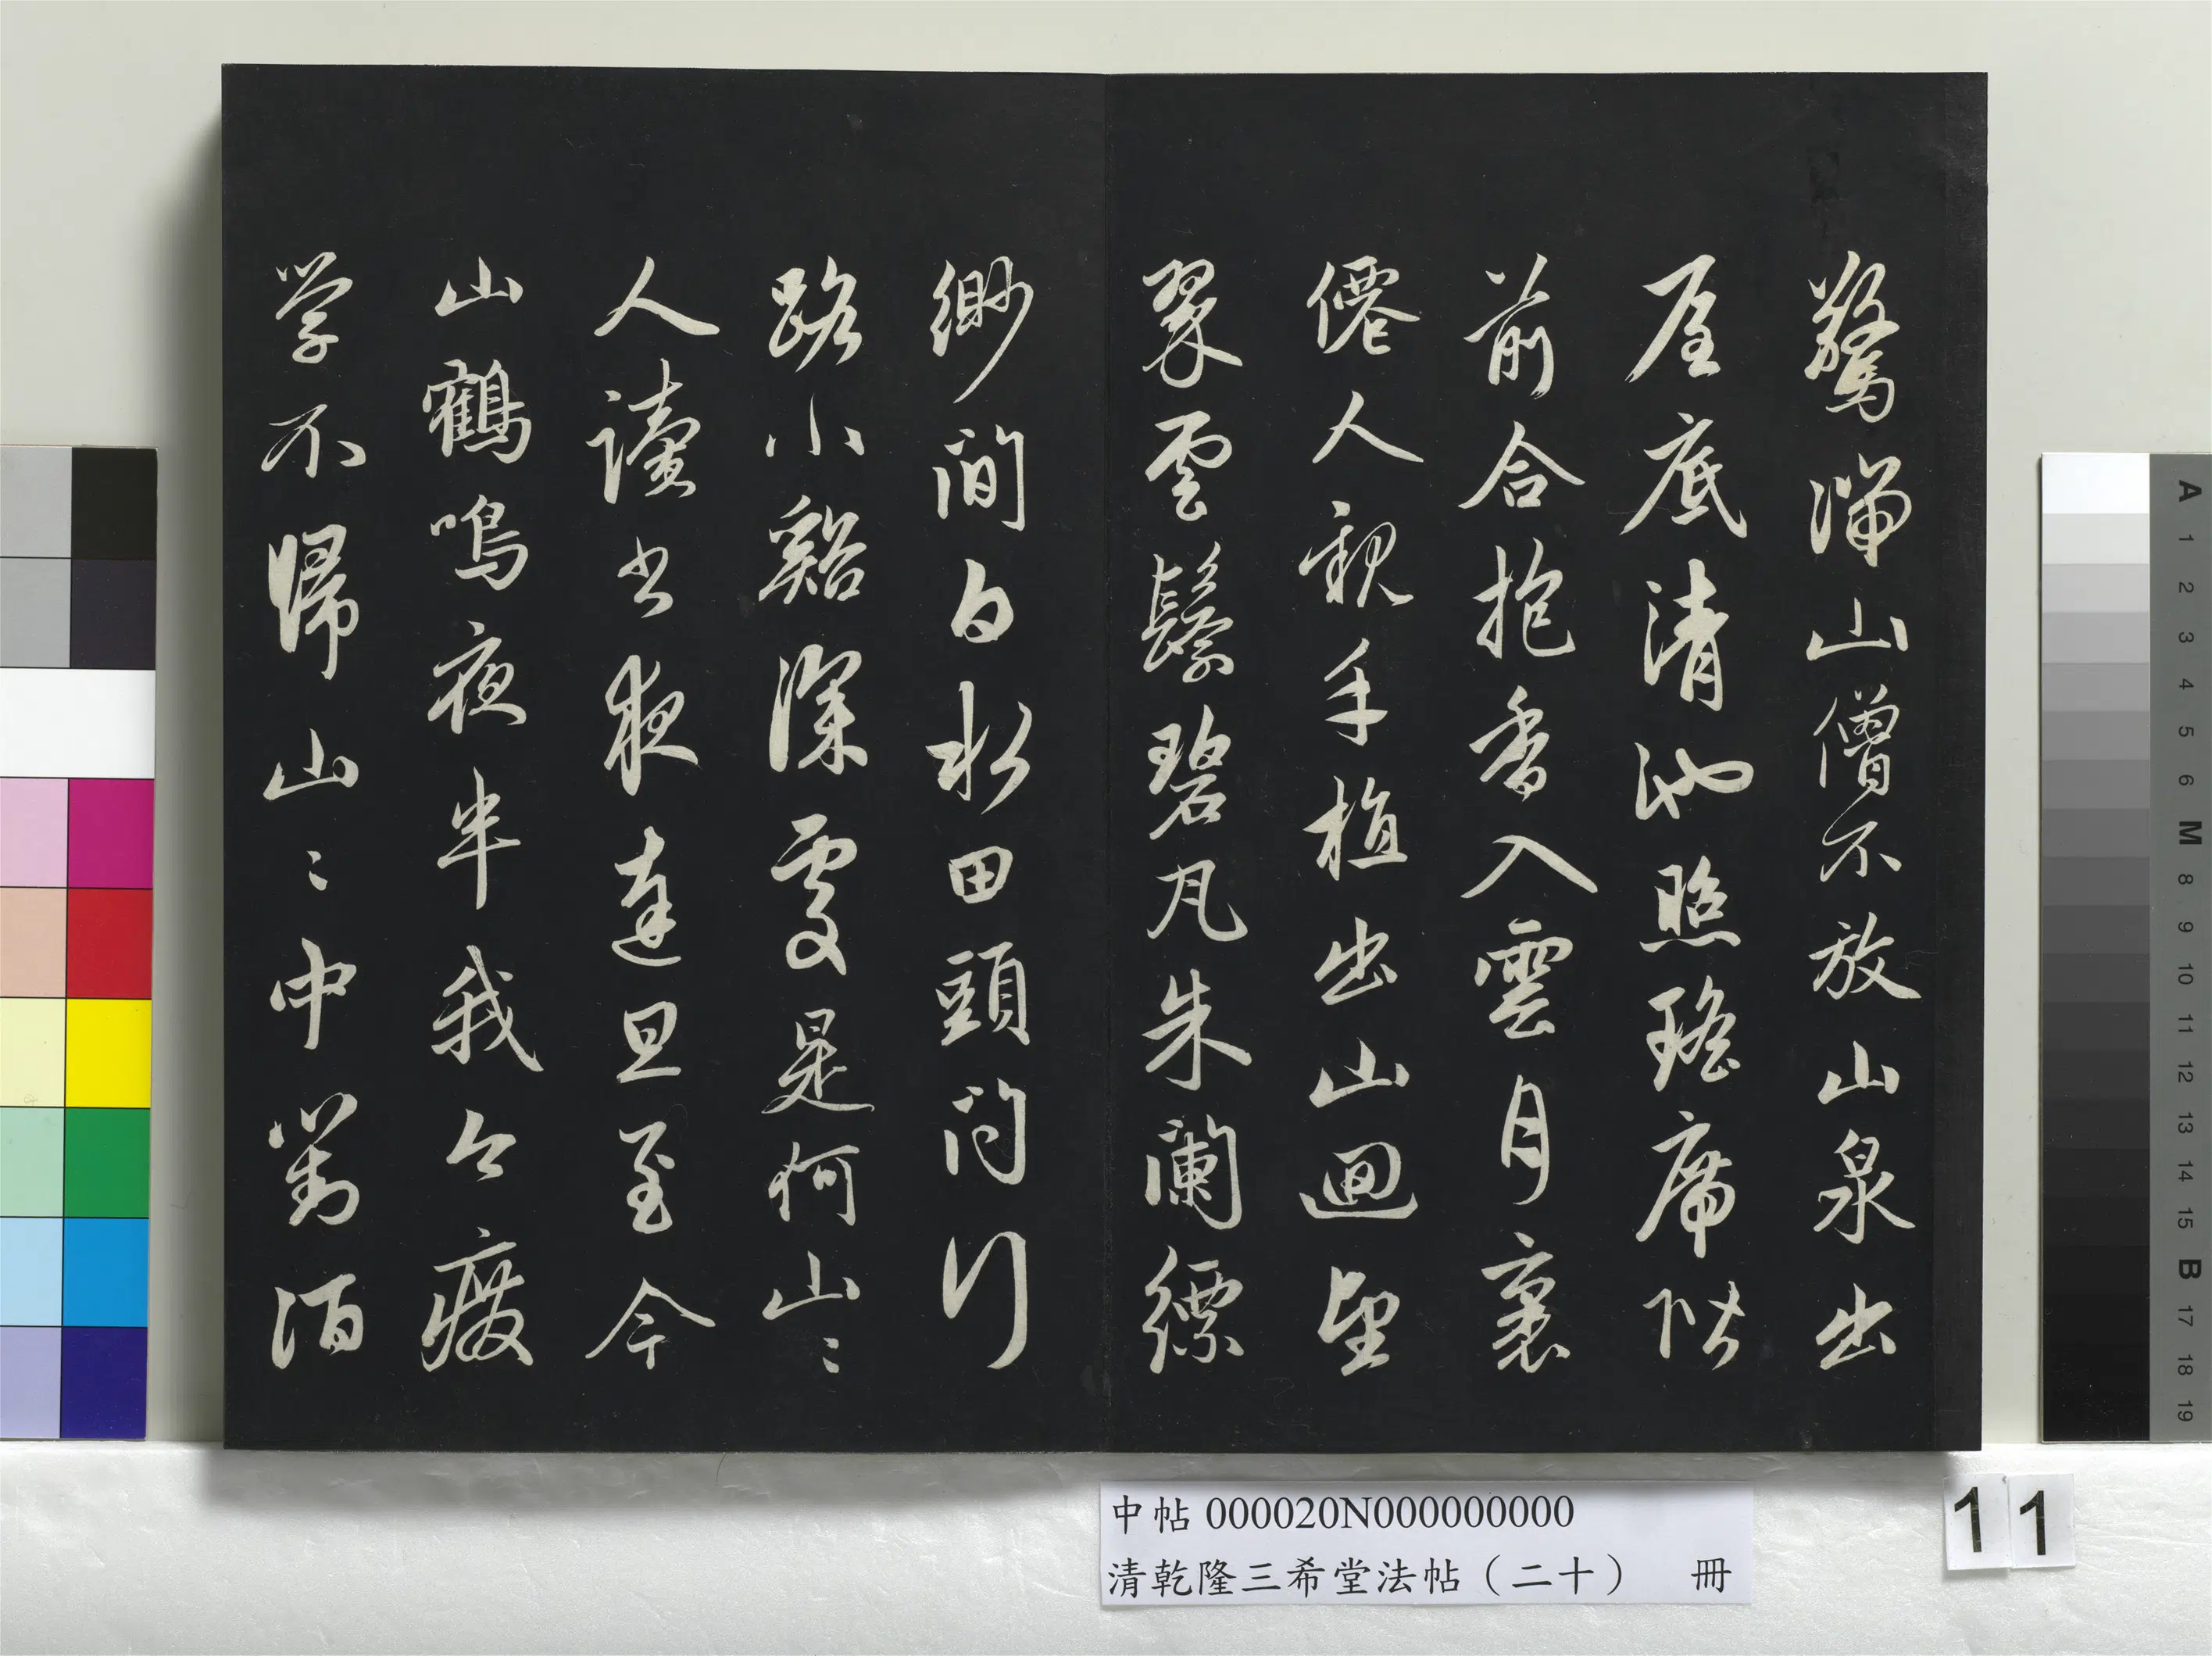 驚湍山僧不放山泉出
屋底清池照瑤席階
前合抱香入雲月裏
僊人親手植出山迴望
翠雲鬟碧瓦朱闌縹
緲間白水田頭問行
路小谿深處是何山〻
人讀書夜達旦至今
山鶴鳴夜半我今廢
学不歸山〻中對酒
中帖 000020N000000000
清乾隆三希堂法帖（二十） 冊
11
A 1 2 3 4 5 6 M 8 9 10 11 12 13 14 15 B 17 18 19